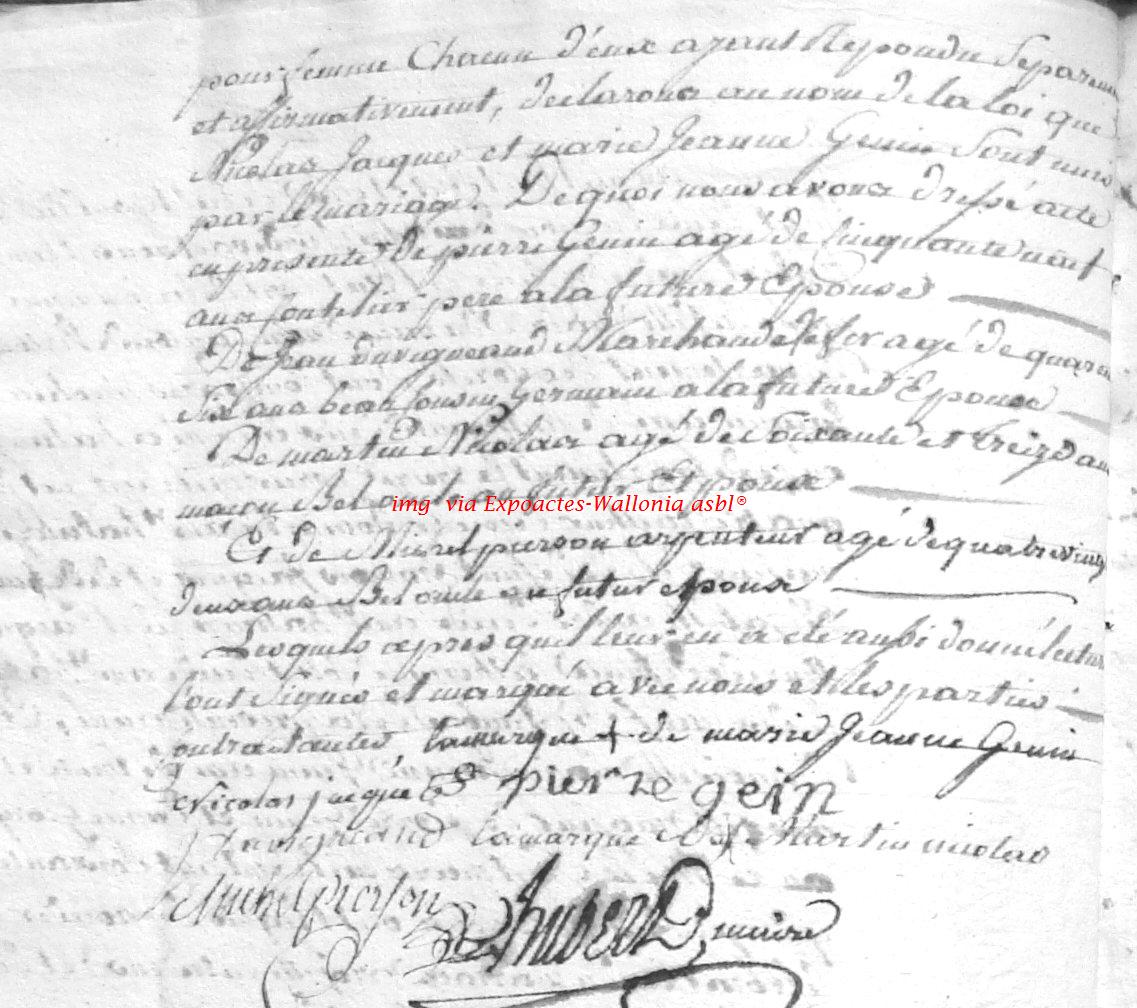 pour femme Chacun d'eux ayant Repondu Separem
et affirmativement, declarons au nom de la loi que
Nicolas Jacques et marie Jeanne Genin Sont unis
par le mariage. De quoi nous avons dressé acte
en presence de pierre Genin agé de Cinquante neuf
ans pere a la future Epouse
De Jean duvigneaud Marchand de fer agé de quaran
Six ans beau Cousin Germain a la future Epouse
De martin Nicolas agé de Soixante et treize ans
maçon Bel futur Epoux
img via Expoactes-Wallonia asbl®
Et de Michel pierson arpenteur agé de quatre vingt
deux ans Bel oncle au futur epoux
Lesquels apres qu'il leur en a eté aussi donné lectur
l'ont Signés et marqué avec nous et les parties
contractantes, la marque + de marie Jeanne Genin
Nicolas jacque pierre gein
la marque de Martin nicolas
Michel pierson Hubert maire